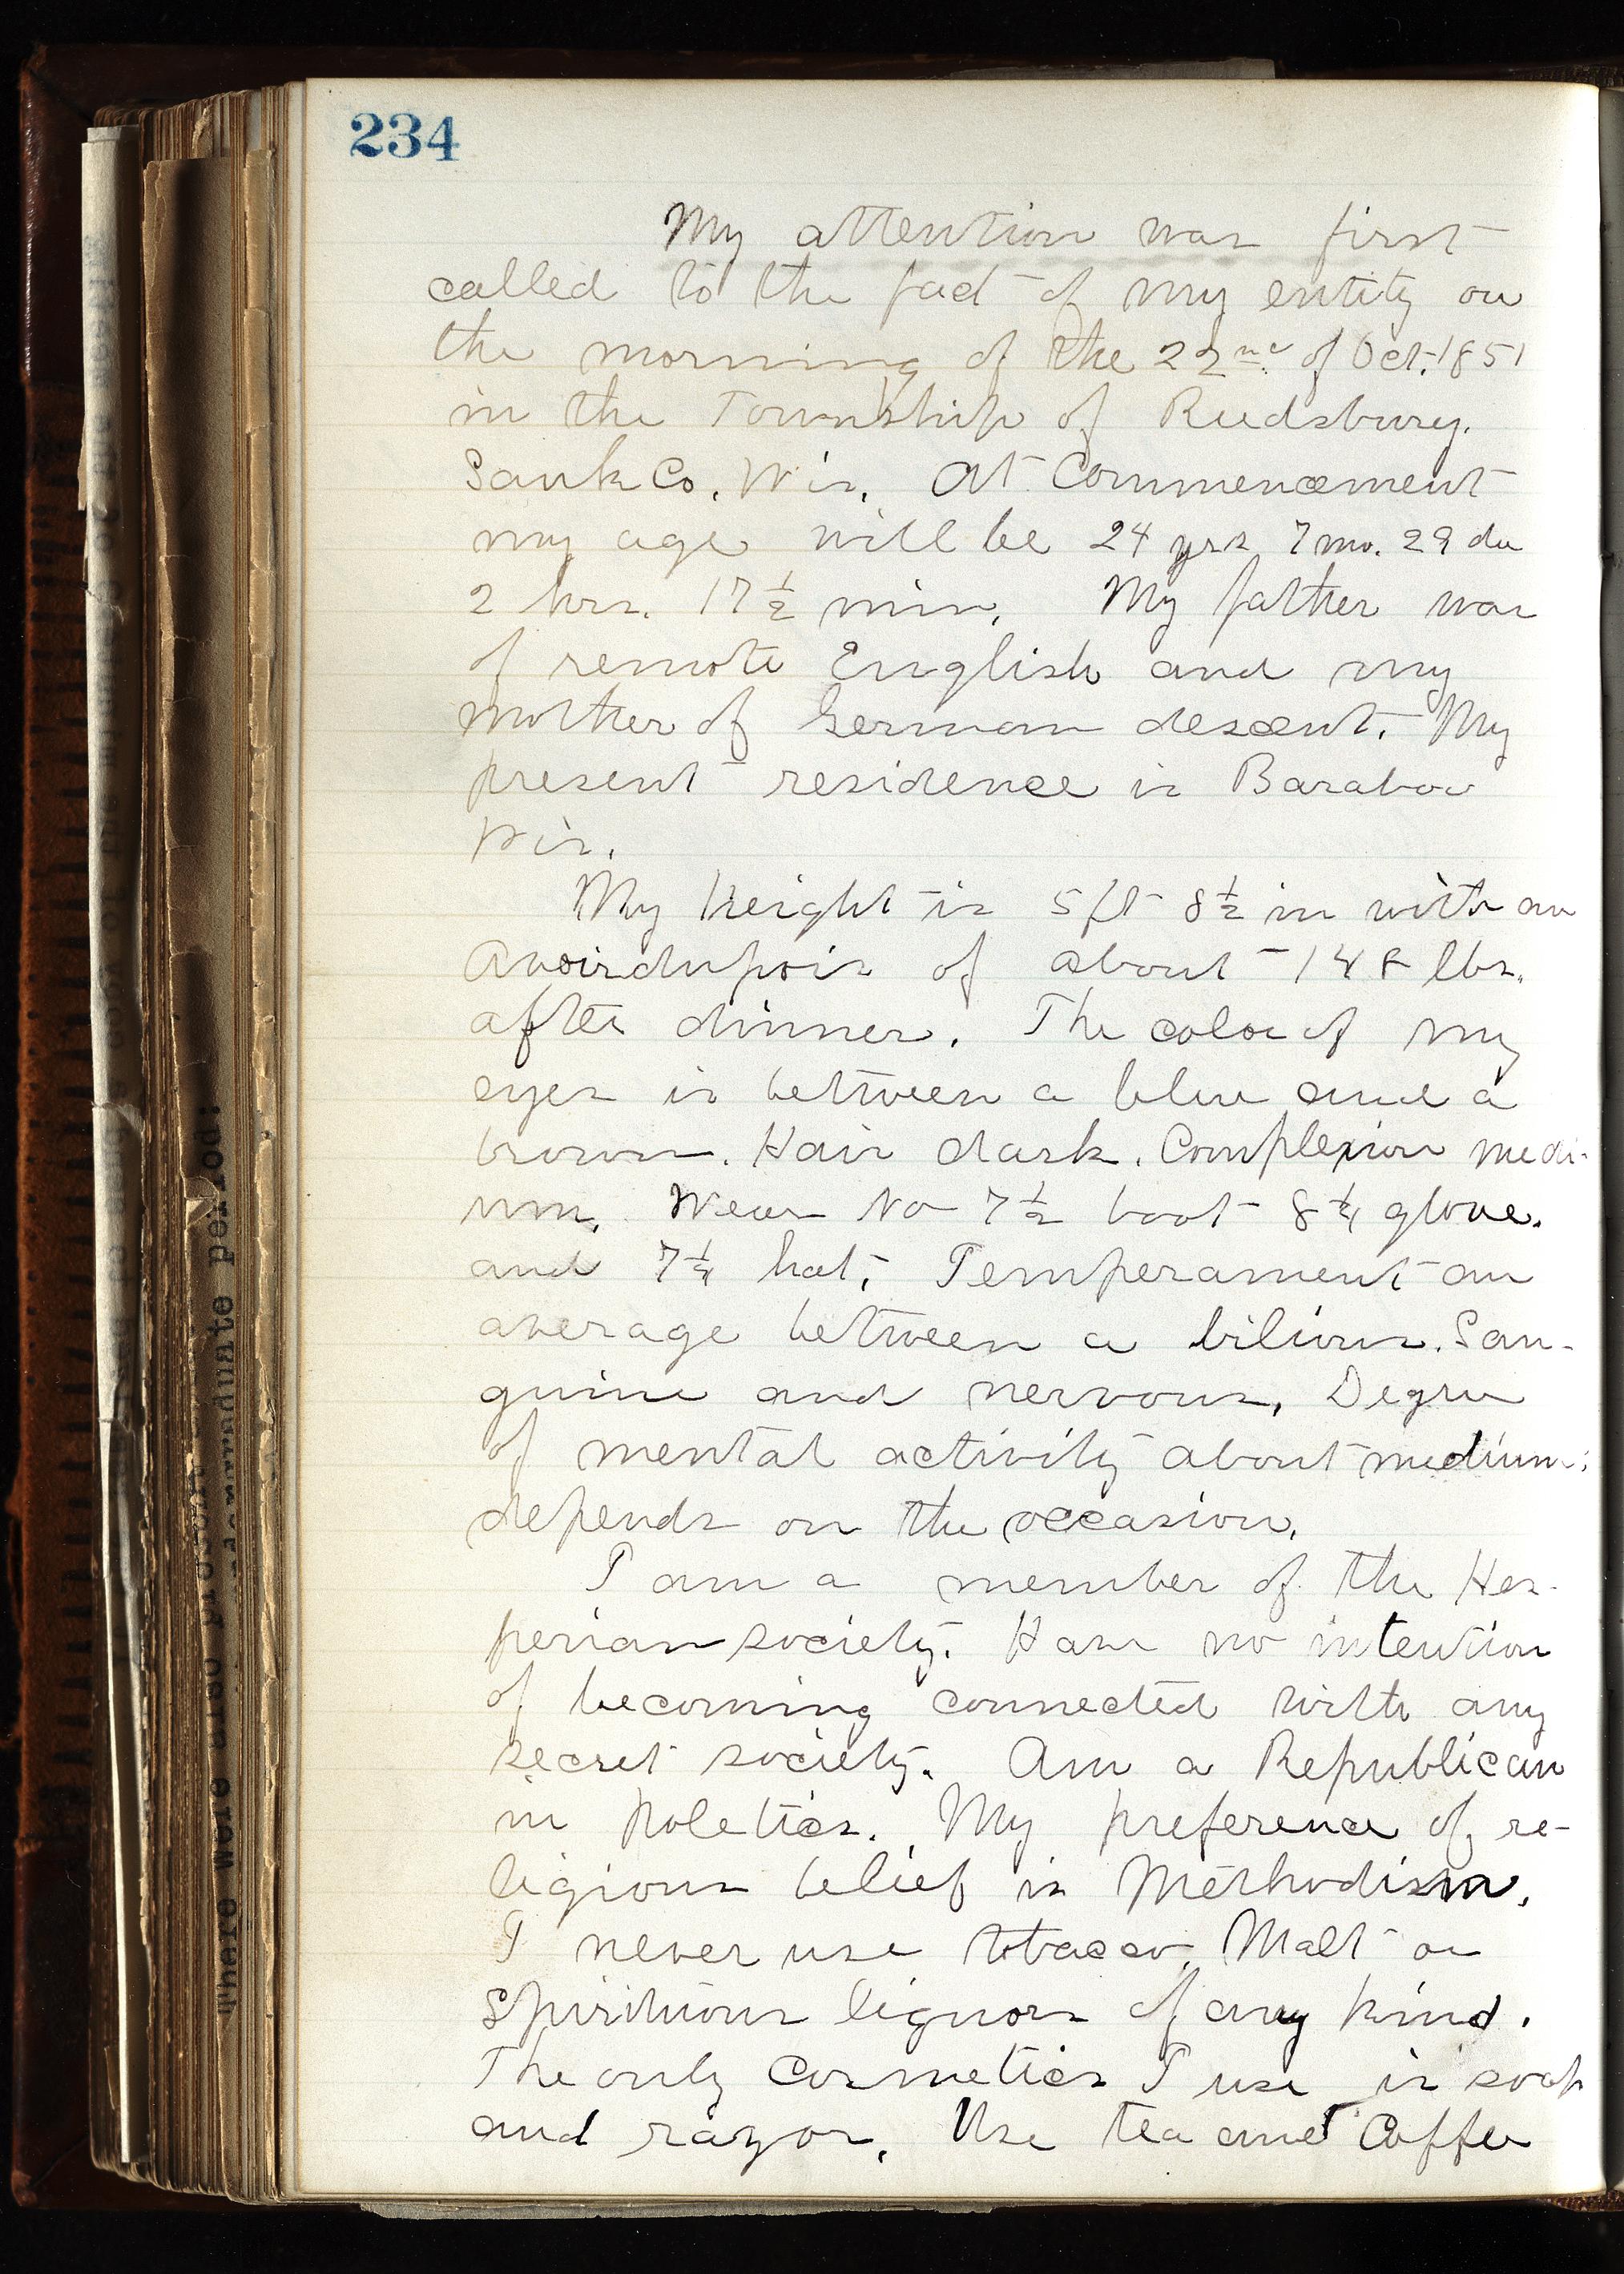 234
My attention was first
called to the fact of my entity on
the morning of the 22nd of Oct. 1851
in the Township of Reedsbury.
Sauk Co. Wis. At Commencement
my age will be 24 yrs 7 mo. 29 da
2 hrs. 17½ min. My father was
of remote English and my
mother of German descent. My
present residence is Baraboo
Wis.
My height is 5 ft 8½ in with an
Avoirdupois of about 148 lbs.
after dinner. The color of my
eyes is between a blue and a
brown. Hair dark. Complexion medi-
um. Wear No 7½ boot 8¼ glove.
and 7¼ hat. Temperament an
average between a bilious. San-
guine and nervous. Degree
of mental activity about medium;
depends on the occasion.
I am a member of the Hes-
perian society. Have no intention
of becoming connected with any
secret society. Am a Republican
in poletics. My preference of re-
ligious belief is Methodism.
I never use tobacco, Malt or
Spirituous liquors of any kind.
The only cosmetics I use is soap
and razor. Use tea and Coffee
There were also
undergraduate period: